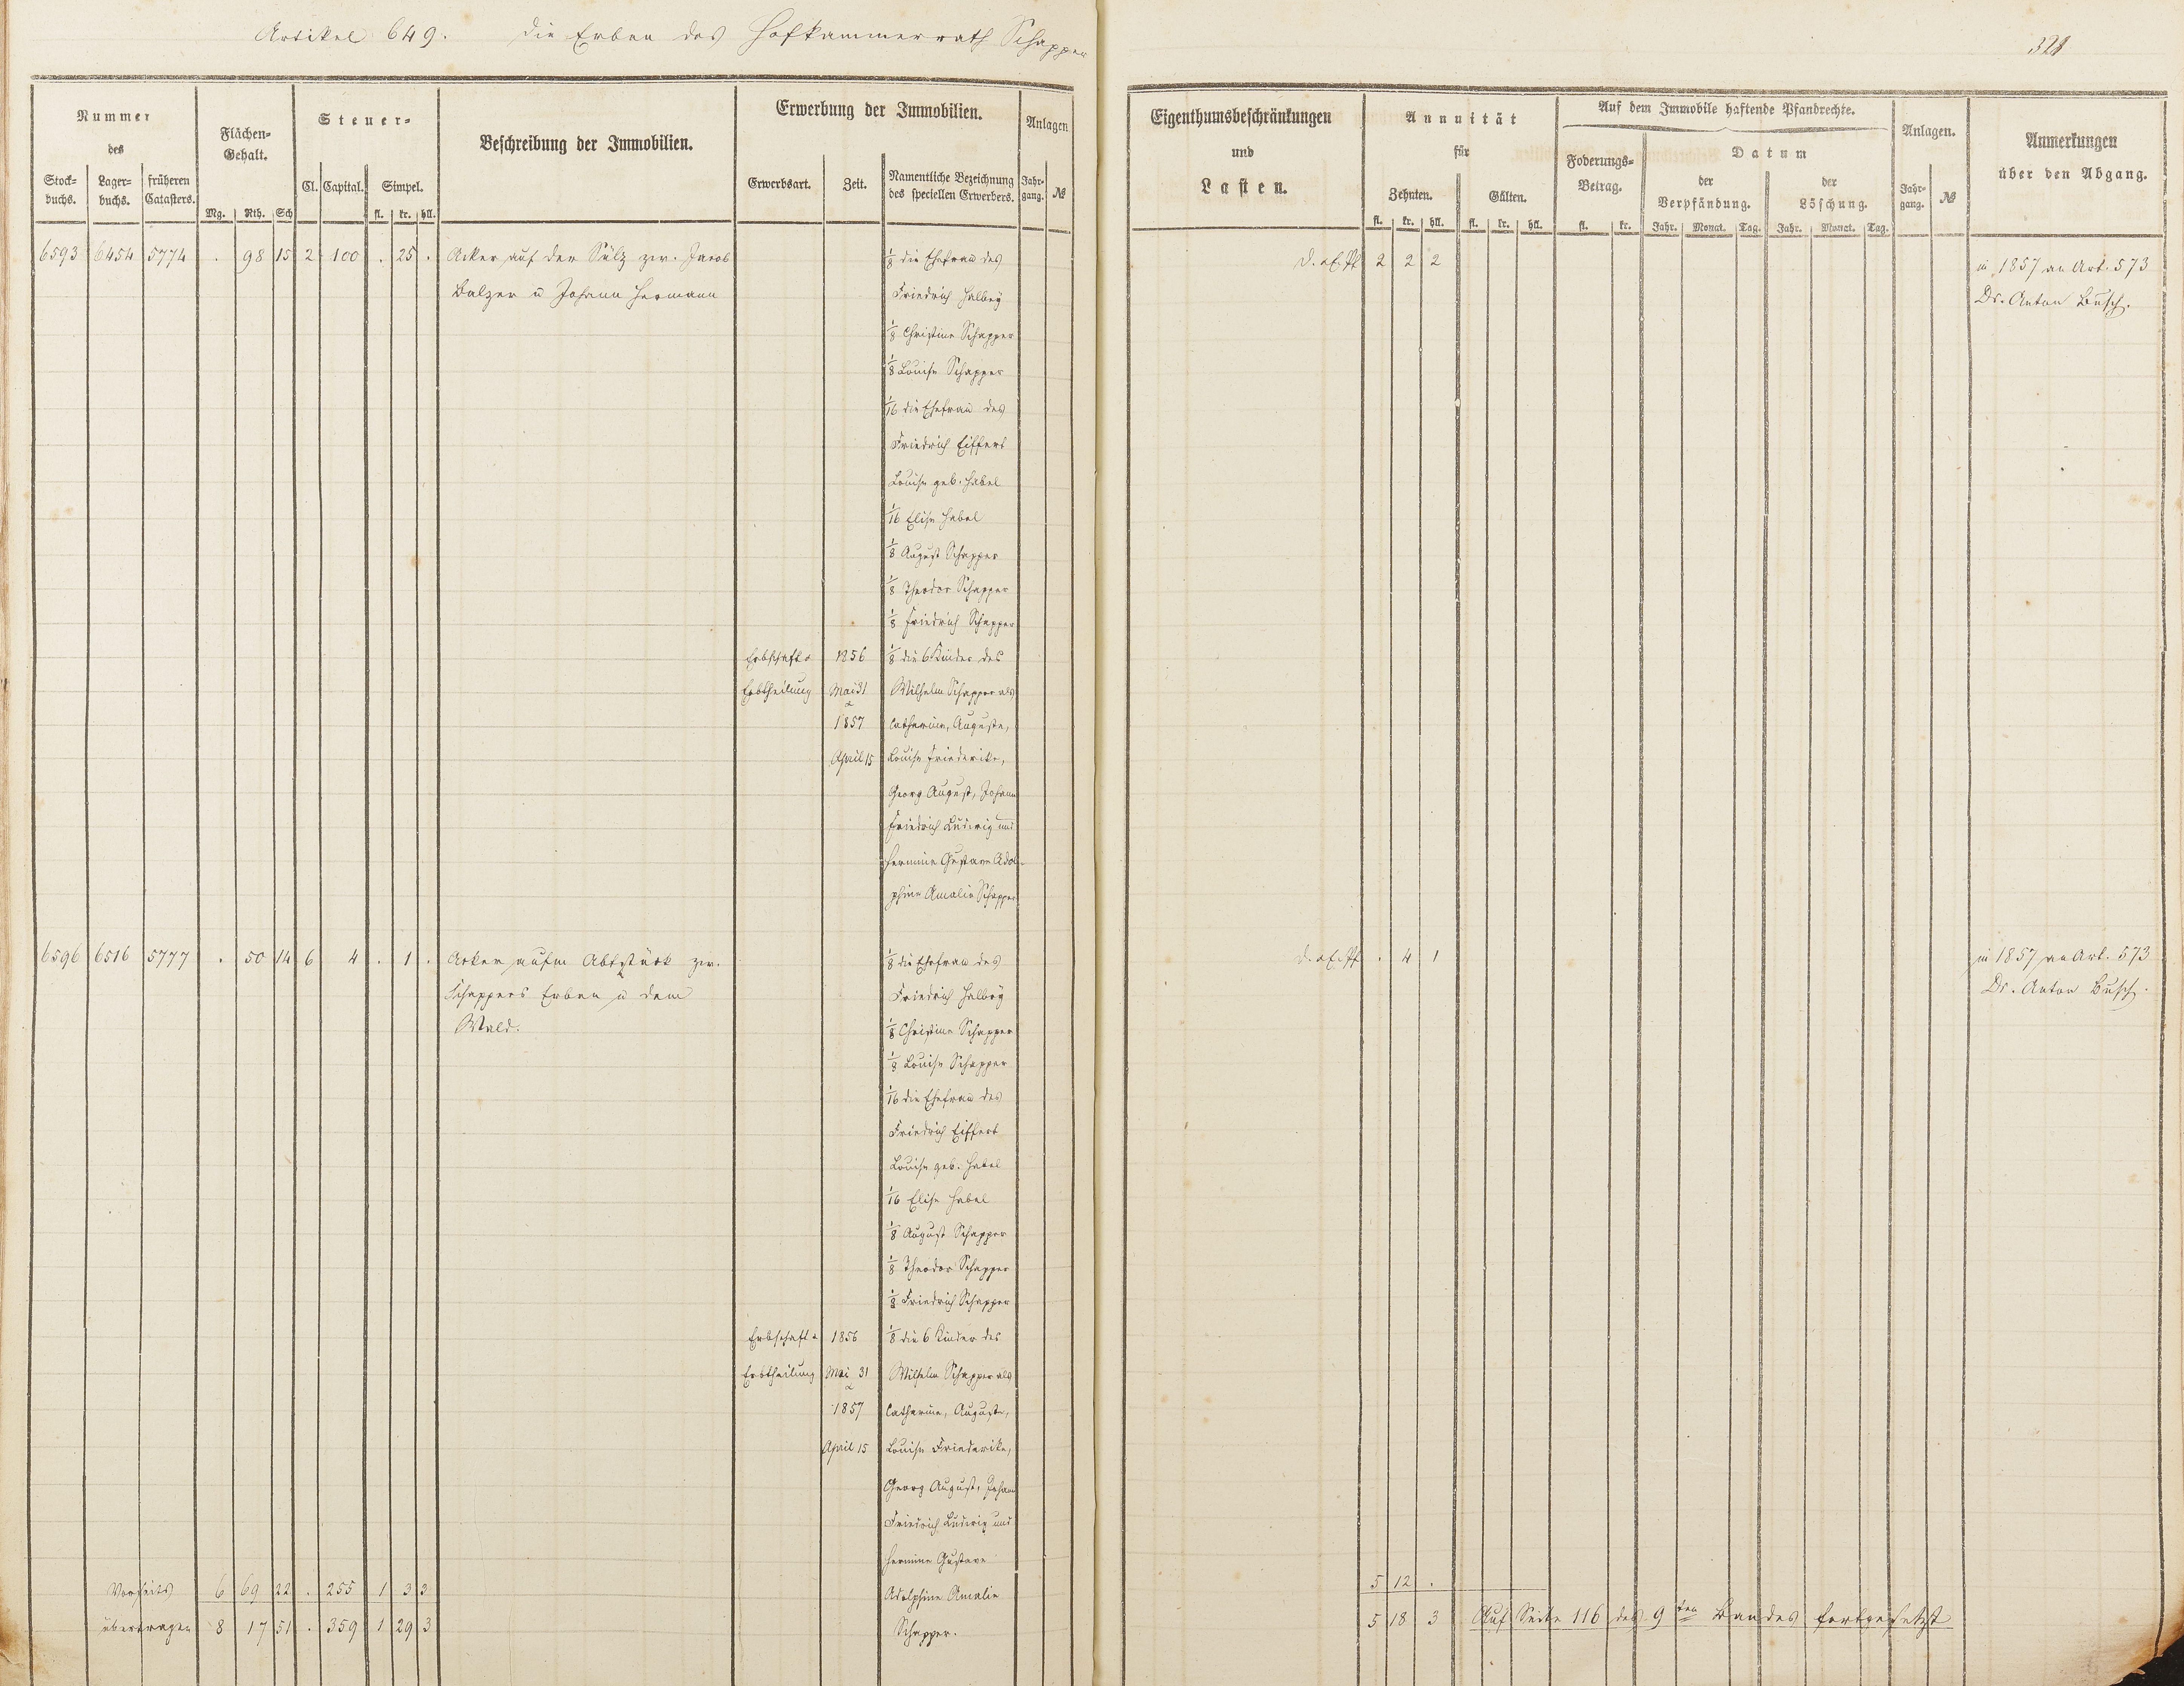 Artikel 649. Die Erben des Hofkammerrath Schapper
321
Nummer des
Stock-buchs. Lager-buchs. früheren Catasters.
Flächen-Gehalt.
Mg. Rth. Sch
Steuer-
Cl. Capital. Simpel.
fl. kr. hll.
Beschreibung der Immobilien.
Erwerbung der Immobilien.
Erwerbsart. Zeit. Namentliche Bezeichnung des speciellen Erwerbers.
Anlagen
Jahr-gang. №
Eigenthumsbeschränkungen
und
Lasten.
Annuität
für
Zehnten. Gülten.
fl. kr. hll. fl. kr. hll.
Auf dem Immobile haftende Pfandrechte.
Foderungs-Betrag.
fl. kr.
Datum
der Verpfändung. der Löschung.
Jahr. Monat. Tag. Jahr. Monat. Tag.
Anlagen.
Jahr-gang. №
Anmerkungen
über den Abgang.
6593 6454 5774 . 98 15 2 100 . 25 . Acker auf der Sülz zw. Jacob
Balzer u Johann Hermann
1/8 die Ehefrau des
Friedrich Halbey
1/8 Christine Schapper
1/8 Louise Schapper
1/16 die Ehefrau des
Friedrich Eiffert
Louise geb. Habel
1/16 Elise Habel
1/8 August Schapper
1/8 Theodor Schapper
1/8 Friedrich Schapper
Erbschaft & 1856 1/8 die 6 Kinder des
Erbtheilung Mai 31 Wilhelm Schapper als
&
1857 Catharine, Auguste,
April 15 Louise Friederike,
Georg August, Johann
Friedrich Ludwig und
Hermine Gustave Adol-
phine Amalie Schapper
2 2 2
in 1857 an Art. 573
Dr. Anton Busch.
6596 6516 5777 . 50 14 6 4 . 1 . Acker aufm Abtstück zw.
Schappers Erben u dem
Wald.
1/8 die Ehefrau des
Friedrich Halbey
1/8 Christine Schapper
1/8 Louise Schapper
1/16 die Ehefrau des
Friedrich Eiffert
Louise geb. Habel
1/16 Elise Habel
1/8 August Schapper
1/8 Theodor Schapper
1/8 Friedrich Schapper
Erbschaft & 1856 1/8 die 6 Kinder des
Erbtheilung Mai 31 Wilhelm Schapper als
&
1857 Catharine, Auguste,
April 15 Louise Friederike,
Georg August, Johann
Friedrich Ludwig und
Hermine Gustave
Adolphine Amalie
Schapper.
. 4 1
in 1857 an Art. 573
Dr. Anton Busch.
Vorseits 6 69 22 . 255 1 3 3
übertragen 8 17 51 . 359 1 29 3
5 12 .
5 18 3 Auf Seite 116 des 9ten Bandes fortgesetzt